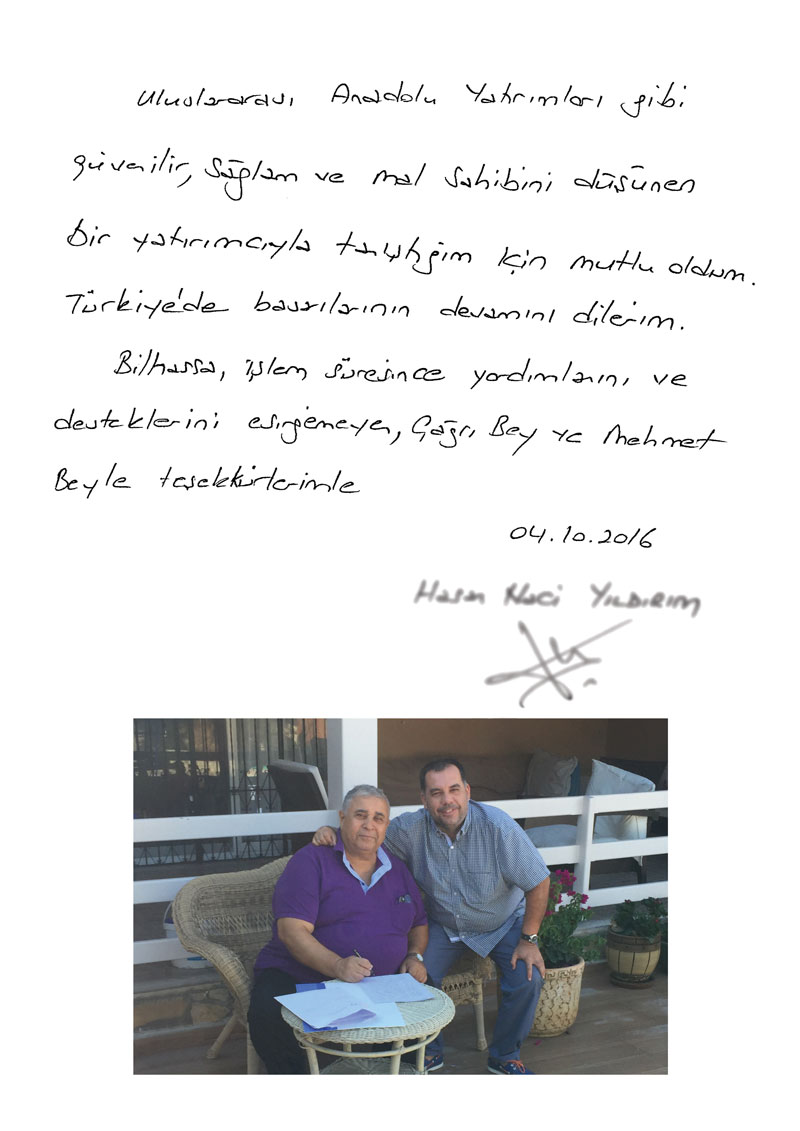 Uluslararası Anadolu Yatırımları gibi
güvenilir, sağlam ve mal sahibini düşünen
bir yatırımcıyla tanıştığım için mutlu oldum.
Türkiye'de başarılarının devamını dilerim.
Bilhassa, işlem süresince yardımlarını ve
desteklerini esirgemeyen, Çağrı Bey ve Mehmet
Beyle teşekkürlerimle
04.10.2016
Hasan Naci YILDIRIM